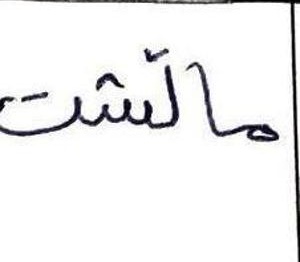 مالشت